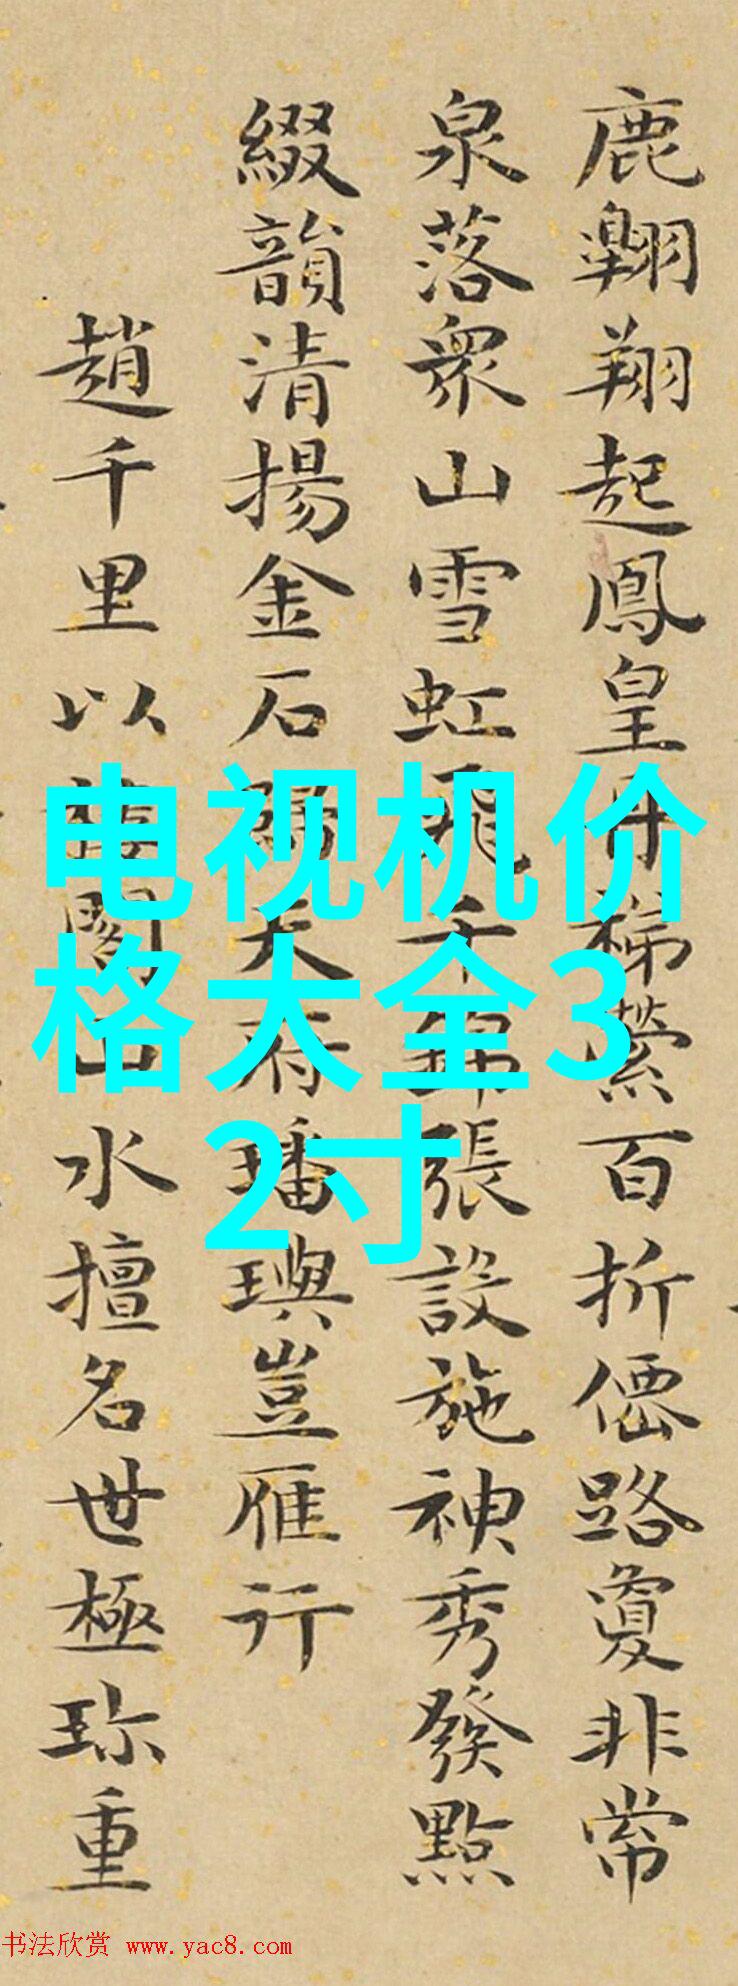 鹿翱翔起鳳皇丹梯縈百折僊路敻非常
泉落衆山雪虹飛千錦張設施神秀發點
綴韻清揚金石歸天府璠璵豈雁行
趙千里以樓閣山水擅名世極珎重
电视机价
格大全3
2寸
书法欣赏 www.yac8.com